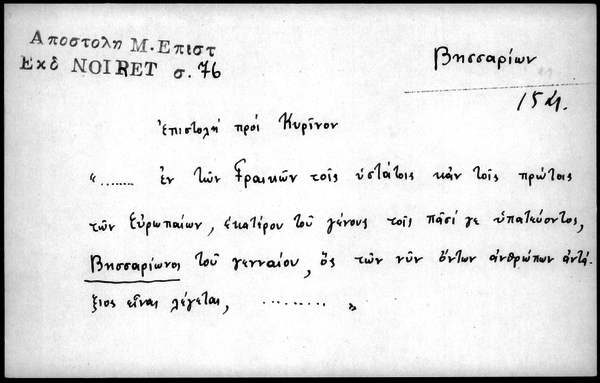 Αποστολη Μ. Επιστ
Εκδ NOIRET σ. 76
Βησσαρίων
15ι.
Ἐπιστολή πρός Κυρῖνον
"....... ἐν τῶν Γραικῶν τοῖς ὑστάτοις κἀν τοῖς πρώτοις
τῶν Εὐρωπαίων, ἑκατέρου τοῦ γένους τοῖς πᾶσί γε ὑπατεύοντος,
Βησσαρίωνος τοῦ γενναίου, ὅς τῶν νῦν ὄντων ἀνθρώπων ἀντά-
ξιος εἶναι λέγεται, .......... "